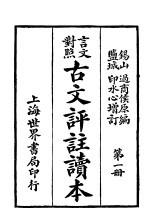 錫山過商侯原編
鹽城印水心增訂
第一冊
言文對照
古文評註讀本
上海世界書局印行